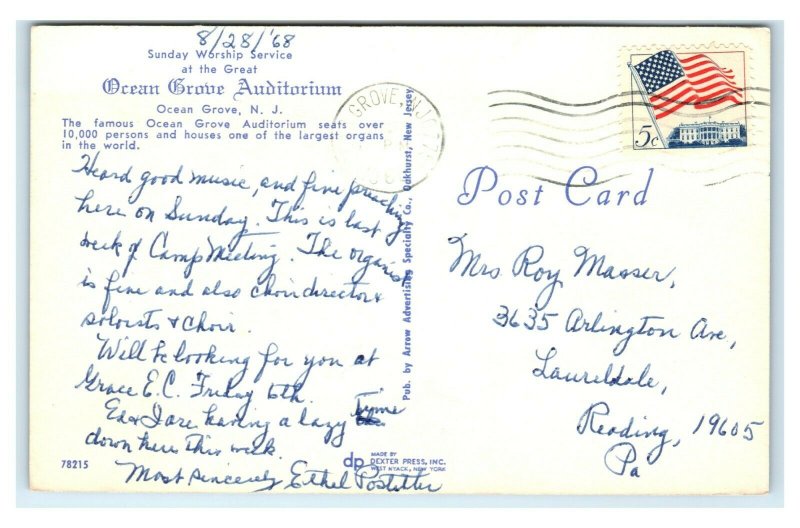 8/28/'68
Sunday Worship Service
at the Great
Ocean Grove Auditorium
Ocean Grove, N. J.
The famous Ocean Grove Auditorium seats over
10,000 persons and houses one of the largest organs
in the world.
Heard good music, and fine preaching
here on Sunday. This is last
week of Camp Meeting. The organist
is fine and also choir director &
soloists & choir.
Will be looking for you at
Grace E.C. Friday 6th.
Ed & I are having a lazy Tyme
down here this week.
Most Sincerely Ethel
78215
dp
MADE BY
DEXTER PRESS, INC.
WEST NYACK, NEW YORK
Pub. by Arrow Advertising Specialty Co., Oakhurst, New Jersey
GROVE, NJ
5c
Post Card
Mrs Roy Masser,
3635 Arlington Ave,
Laureldale,
Reading, 19605
Pa